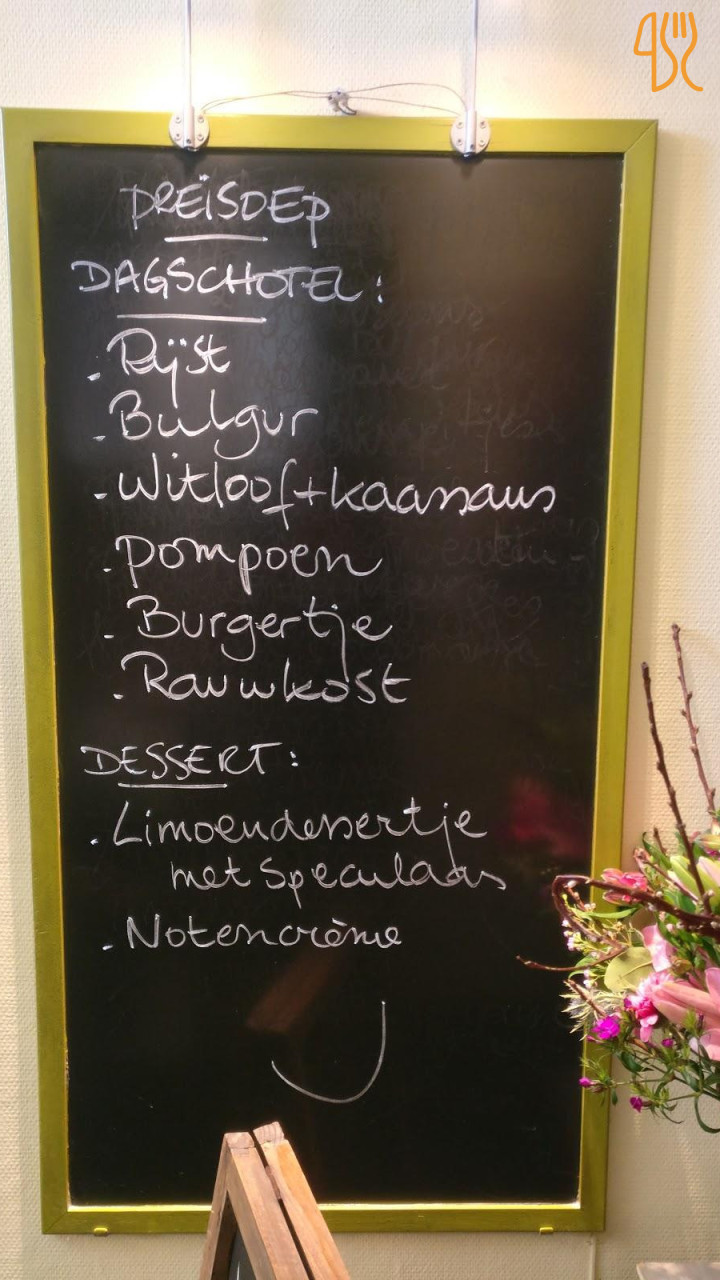 PREÏSOEP
DAGSCHOTEL:
. Rijst
. Bulgur
. Witloof + kaassaus
. pompoen
. Burgertje
. Rauwkost
DESSERT:
. Limoendessertje
met Speculaas
. Notencrème